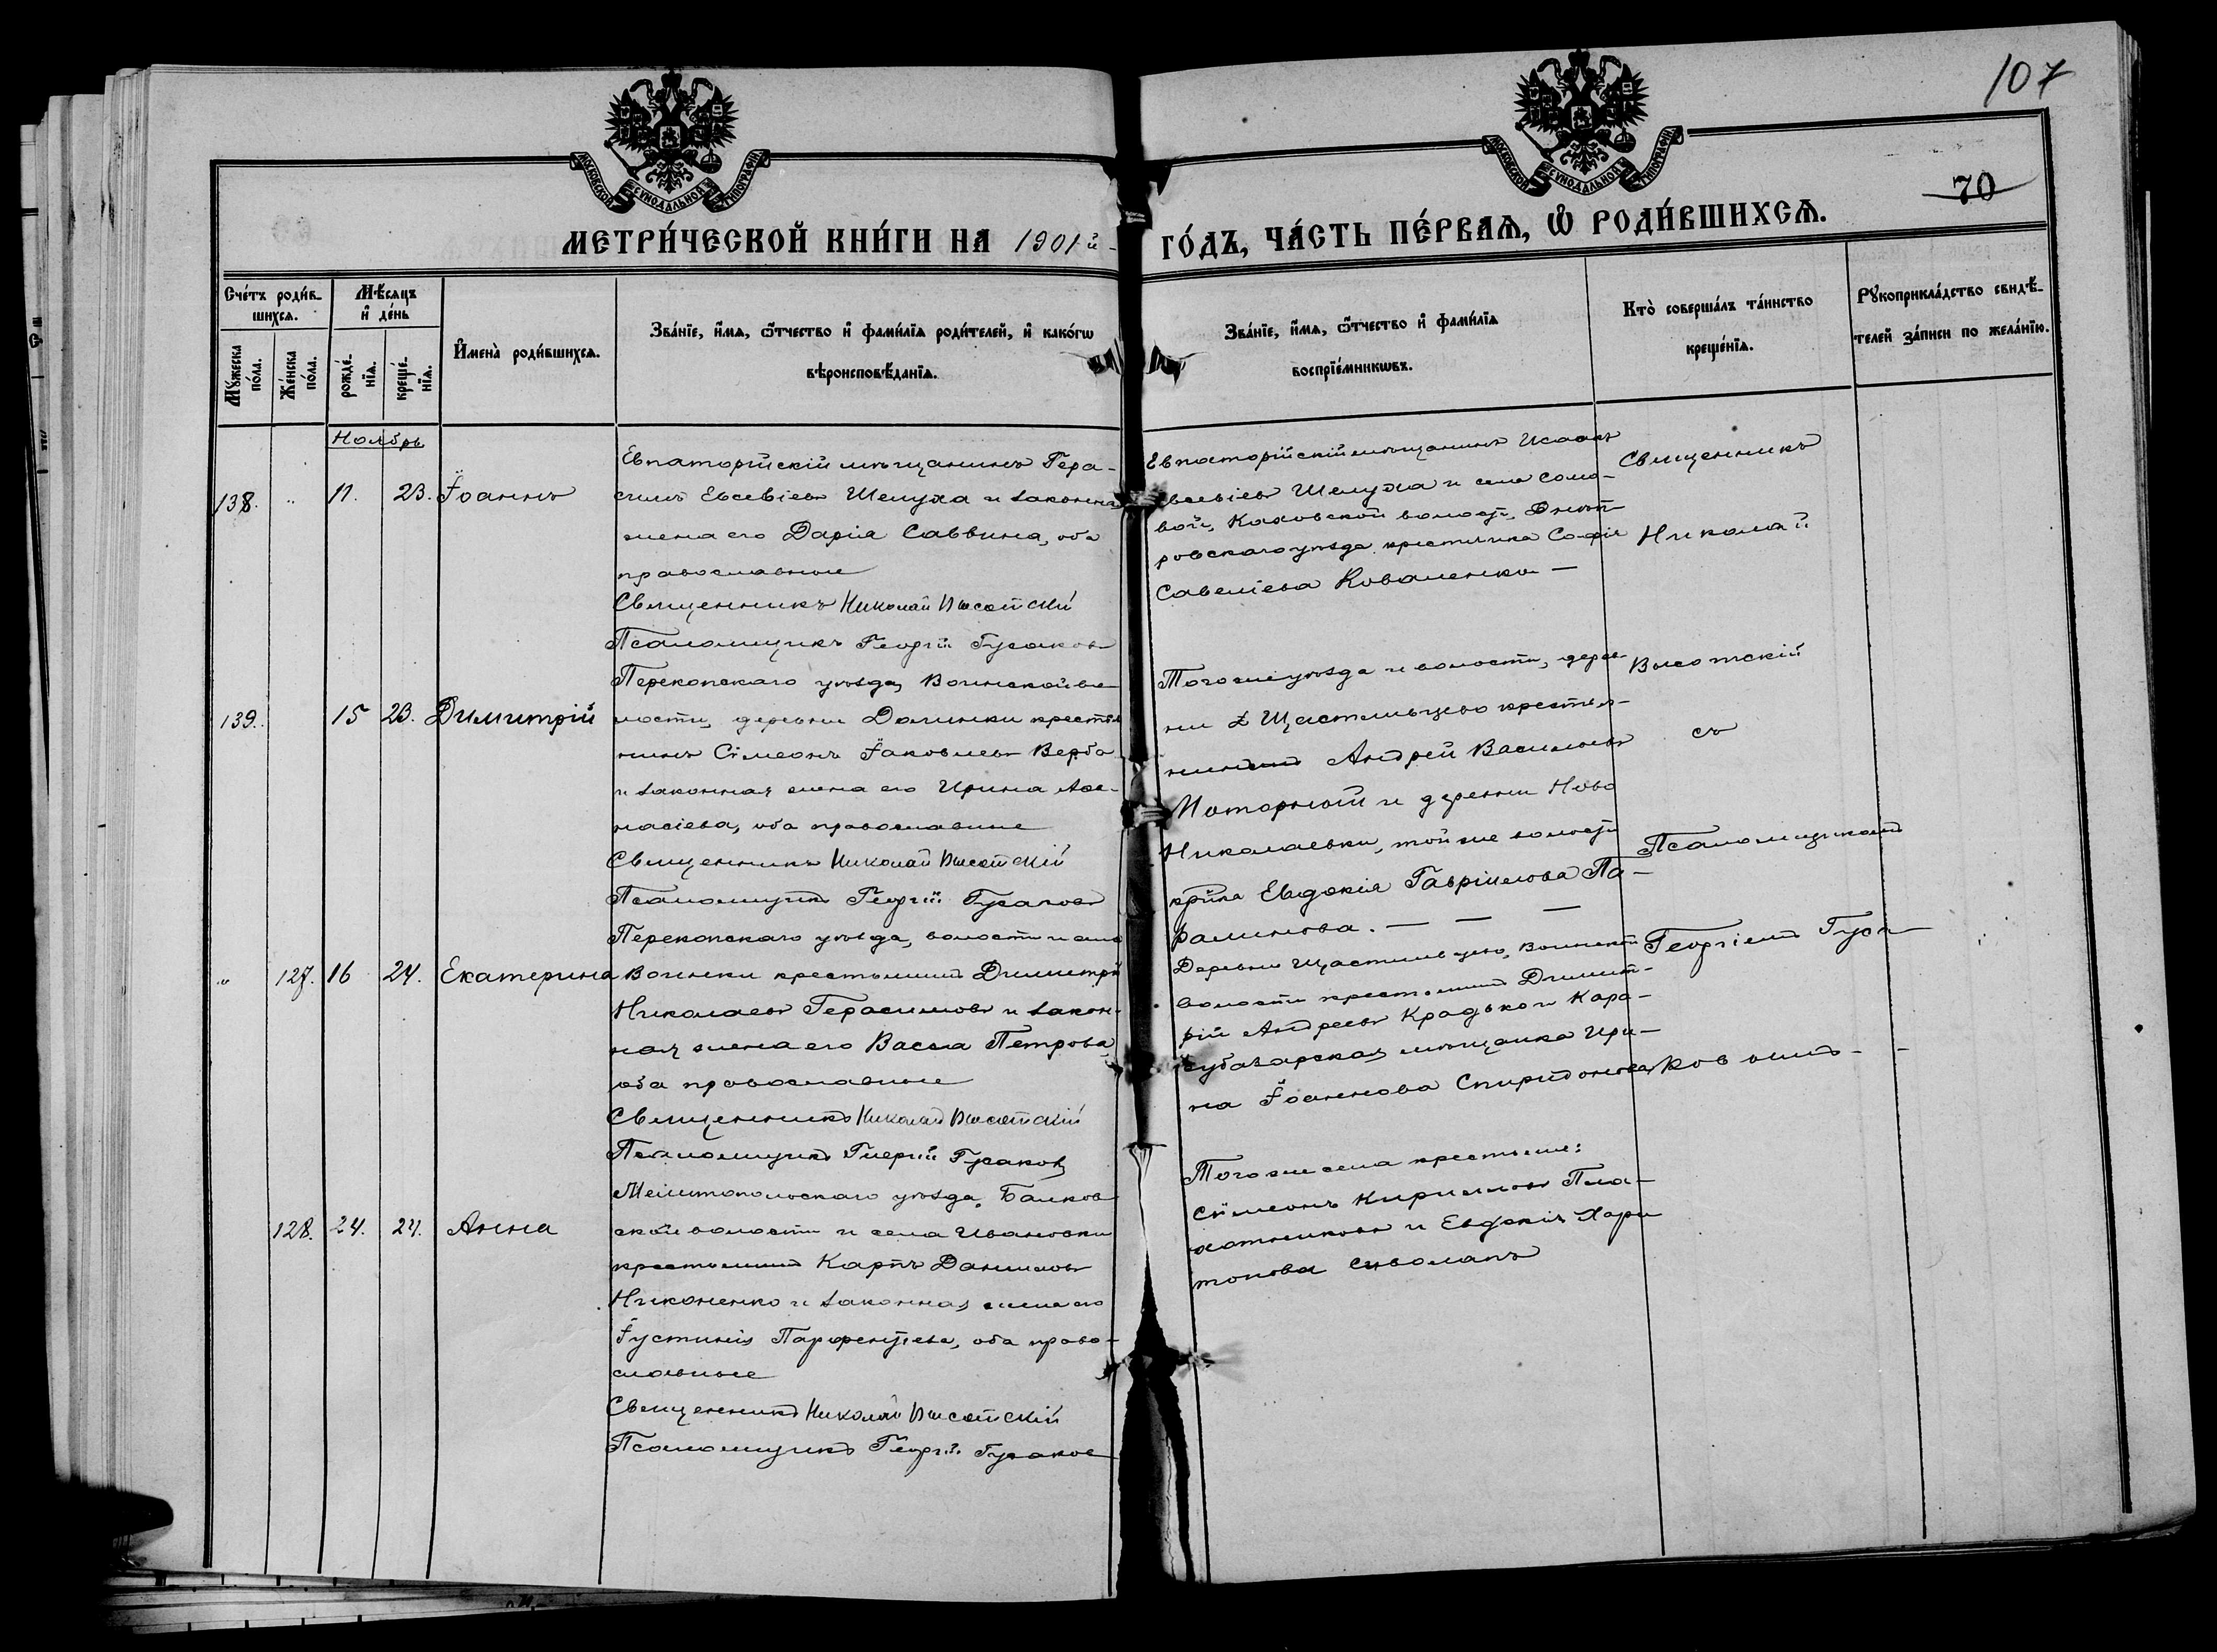 107
МОСКОВСКОЙ СѴНОДАЛЬНОЙ ТИПОГРАФІИ
МОСКОВСКОЙ СѴНОДАЛЬНОЙ ТИПОГРАФІИ
70
МЕТРИ́ЧЕСКОЙ КНИ́ГИ НА 1901й
ГО́ДЪ, ЧА́СТЬ ПЕ́РВАѦ, Ѽ РОДИ́ВШИХСѦ.
Сче́тъ роди́в-
шихсѧ.
Мѣ́сѧцъ
и҆ де́нь
Мꙋ́жеска по́ла.
Же́нска по́ла.
рожде́-
нїѧ.
креще́-
нїѧ.
И҆мена̀ роди́вшихсѧ.
Зва́нїе, и҆́мѧ, ѻ҆́тчество и҆ фами́лїѧ роди́телей, и҆ како́гѡ
вѣроисповѣ́данїѧ.
Зва́нїе, и҆́мѧ, ѻ҆́тчество и҆ фами́лїѧ
воспрїе́мникѡвъ.
Кто̀ соверша́лъ та́инство
креще́нїѧ.
Рꙋкоприкла́дство свидѣ́-
телей за́писи по жела́нїю.
Ноябрь
138. " 11. 23. Іоаннъ
Евпаторійскій мѣщанинъ Гера-
симъ Евсевіевъ Шелуха и законная
жена его Дарія Саввина, оба
православные
Священникъ Николай Высотскій
Псаломщикъ Георгій Гусаковъ
Евпаторійскій мѣщанинъ Исаакъ
Евсевіевъ Шелуха и села
Каховской волости, Днѣп-
ровскаго уѣзда крестьянка Софія
Савеліева Коваленкова —
Священникъ
Николай
Высотскій
съ
Псаломщикомъ
Георгіемъ Гуса-
ковымъ - -
139. 15 23. Димитрій
Перекопскаго уѣзда, Воинской во-
лости, деревни Долинки крестья-
нинъ Сімеонъ Іаковлевъ Верба
и законная жена его Ирина Аѳа-
насіева, оба православные
Священникъ Николай Высотскій
Псаломщикъ Георгій Гусаковъ
Того же уѣзда и волости, дерев-
ни Щастливцево крестья-
нинъ Андрей Васильевъ
Моторный и деревни Ново
Николаевки, той же волости
кр-нка Евдокія Гавріилова Па-
рамонова. — — —
" 127. 16 24. Екатерина
Перекопскаго уѣзда, волости и села
Воинки крестьянинъ Димитрій
Николаевъ Герасимовъ и закон-
ная жена его Васса Петрова,
оба православные
Священникъ Николай Высотскій
Псаломщикъ Георгій Гусаковъ
Деревни Щастливцево, Воинской
волости крестьянинъ Димит-
рій Андреевъ Крадько и Кара-
субазарская мѣщанка Ири-
на Іоаннова Спиридонова
128. 24. 24. Анна
Мелитопольскаго уѣзда, Балков-
ской волости и села Ивановки
крестьянинъ Карпъ Даниловъ
Никоненко и законная жена его
Іустинія Парфентіева, оба право-
славные
Священникъ Николай Высотскій
Псаломщикъ Георгій Гусаковъ
Того же села крестьяне:
Сімеонъ Кирилловъ Пла-
хотниковъ и Евдокія Хари
тонова